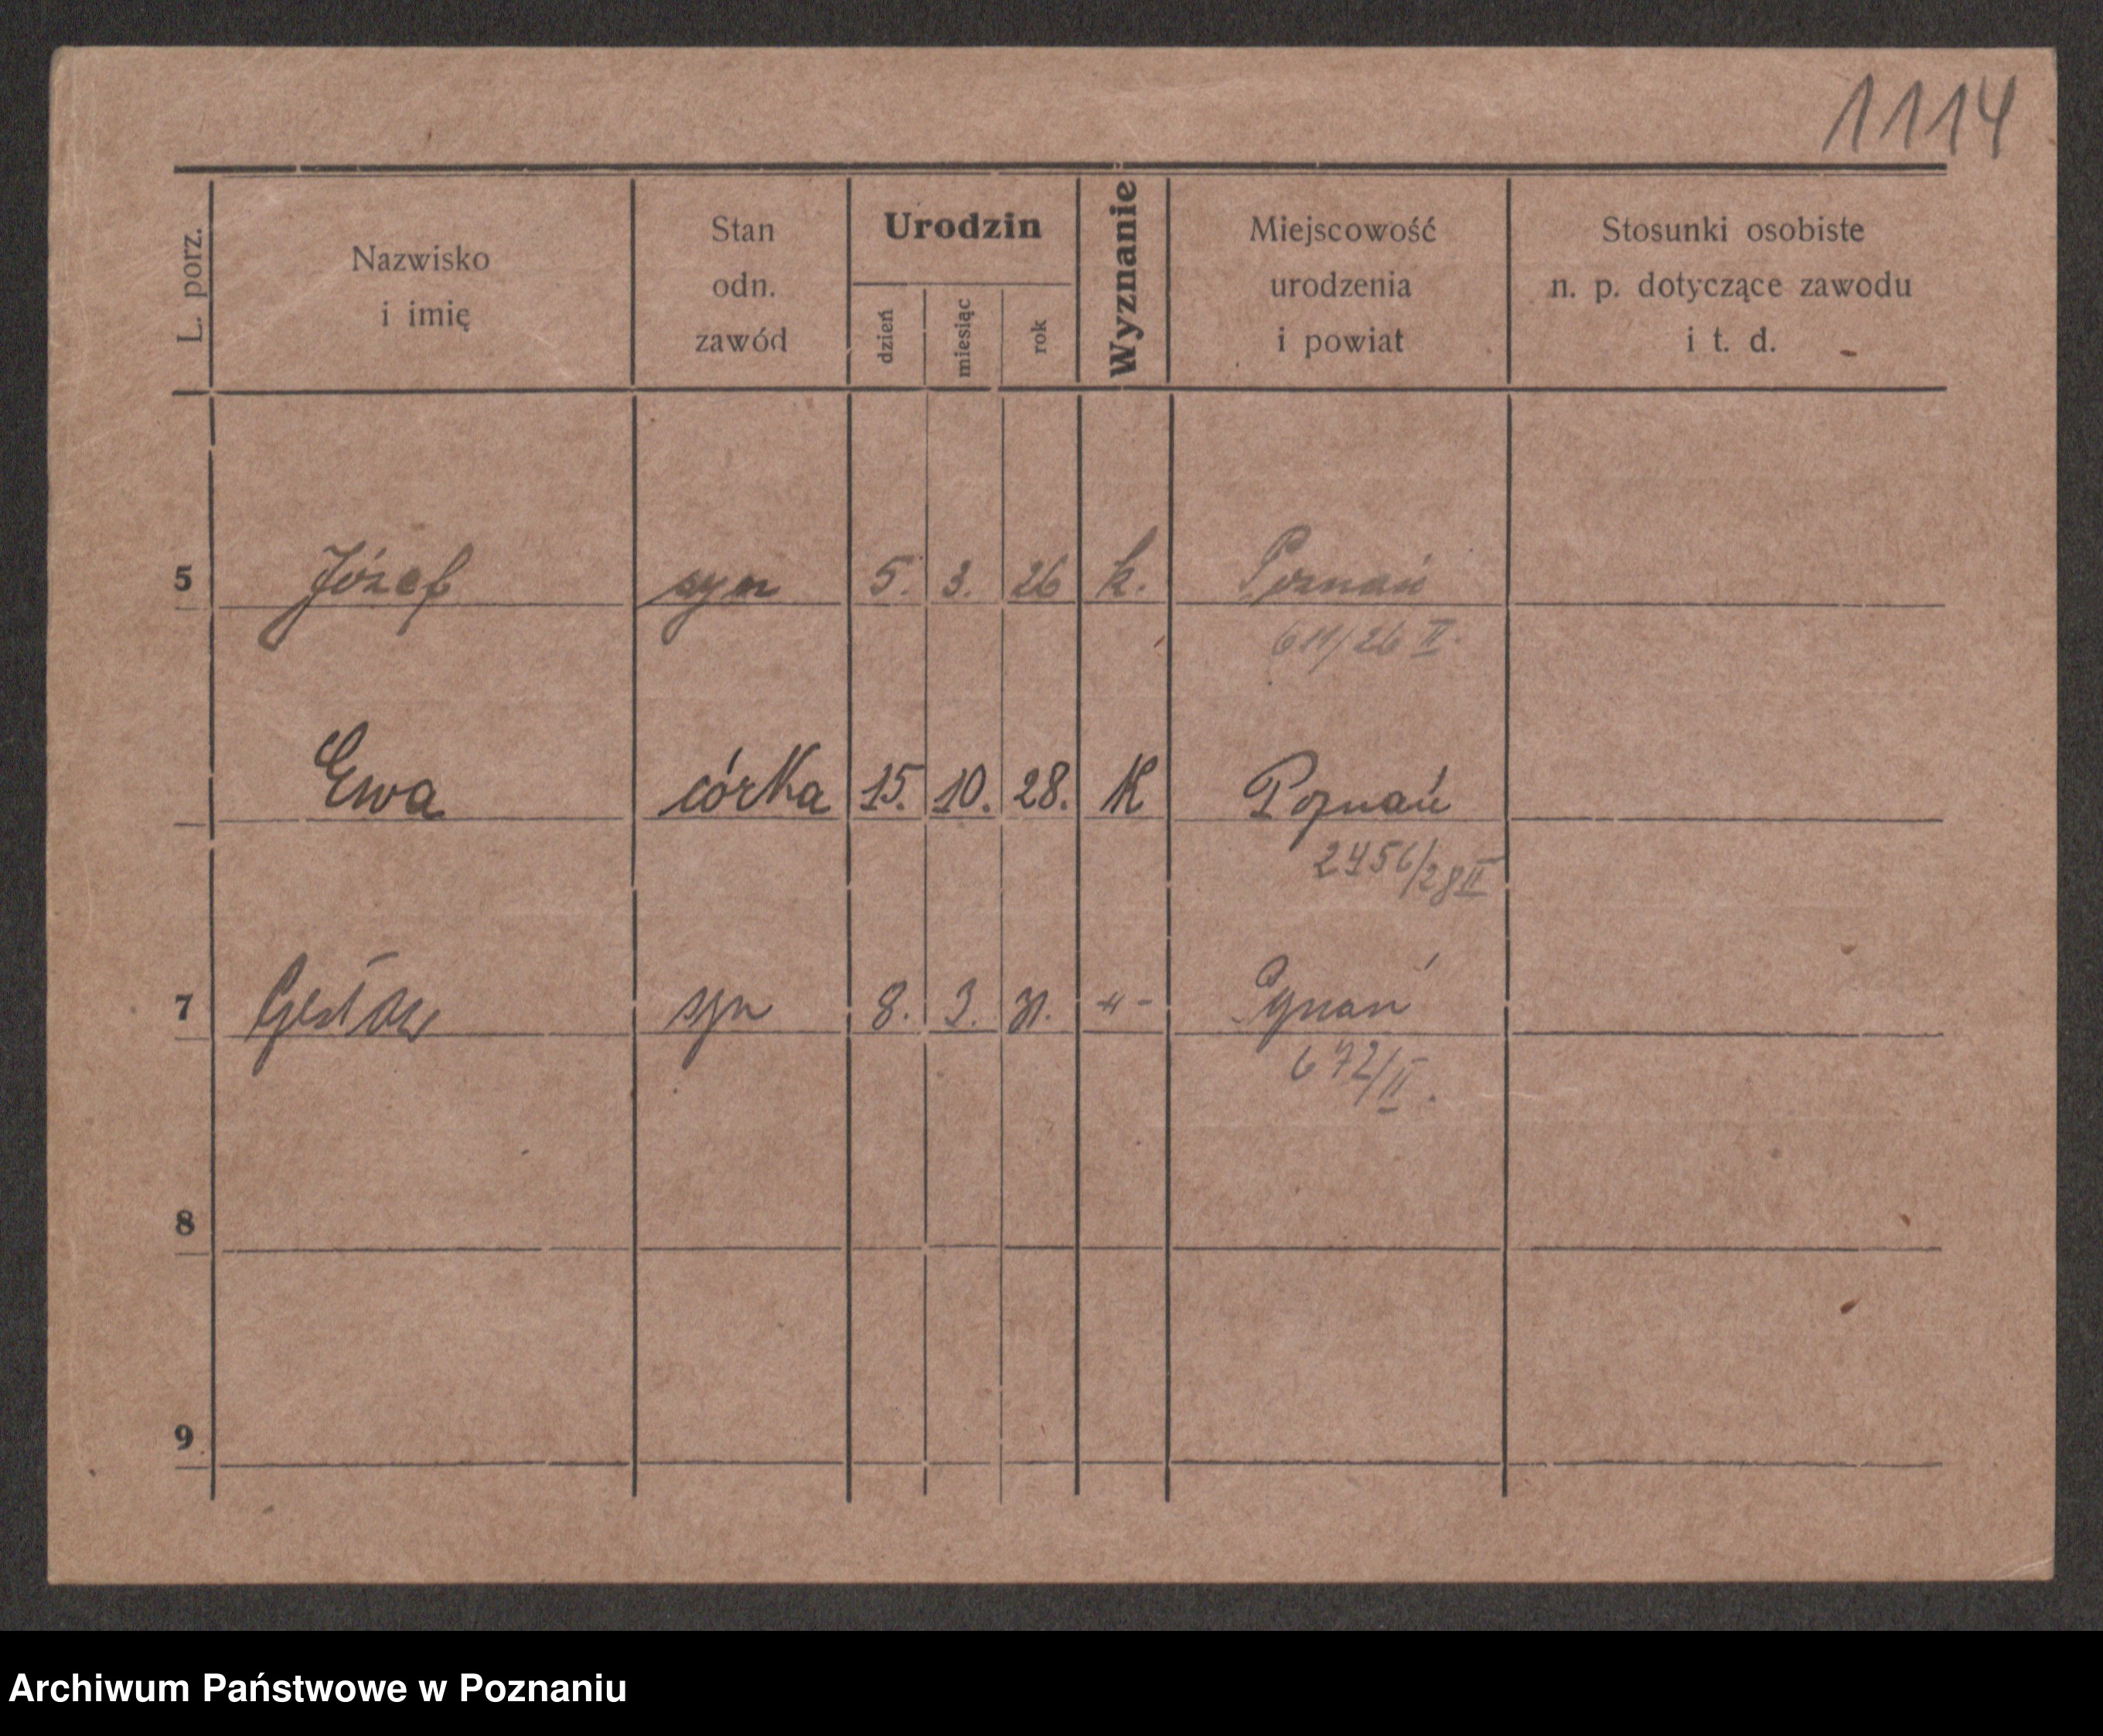 1114
L. porz.
Nazwisko
i imię
Stan
odn.
zawód
Urodzin
dzień
miesiąc
rok
Wyznanie
Miejscowość
urodzenia
i powiat
Stosunki osobiste
n. p. dotyczące zawodu
i t. d.
5 Józef syn 5. 3. 26 k. Poznań
611/26 II.
Ewa córka 15. 10. 28. K Poznań
2456/28 II
7 syn 8. 3. 31. -"- Poznań
672/II.
8
9
Archiwum Państwowe w Poznaniu